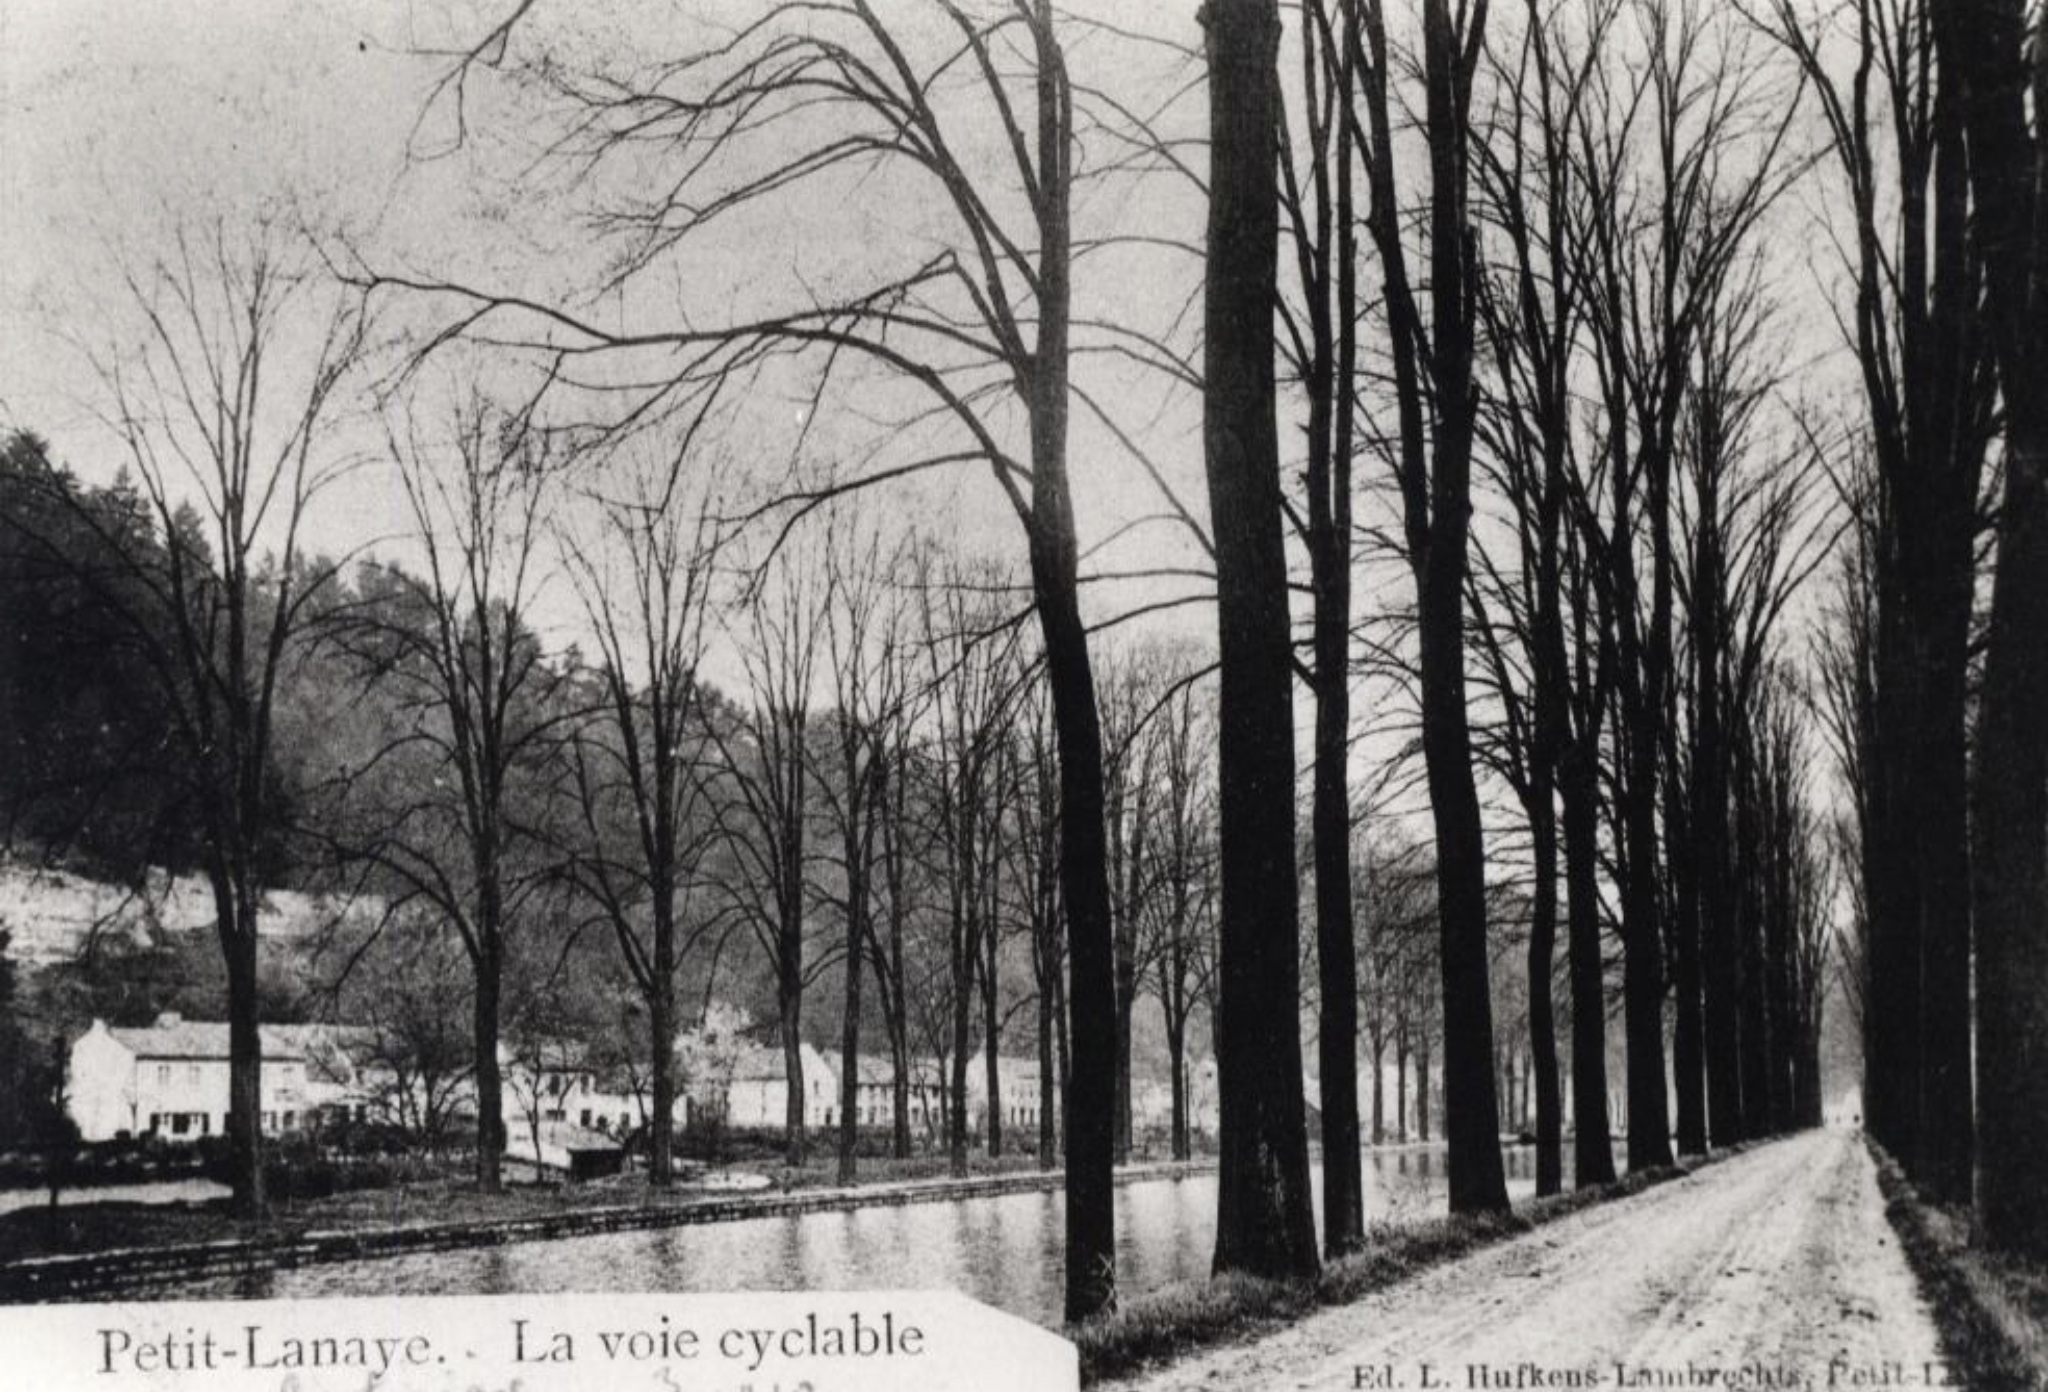 Petit-Lanaye. - La voie cyclable
Ed. L. Hufkens-Lambrechts, Petit-